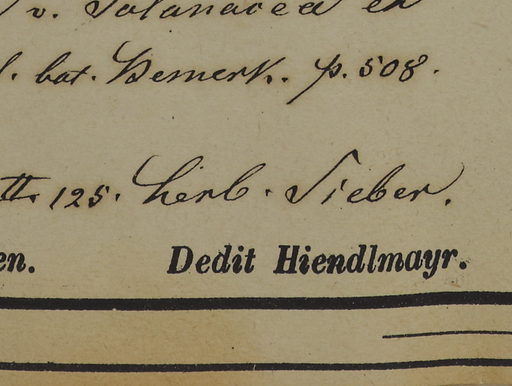 v. Solanacea en
. bot. Bemerk. p. 508.
tt. 125. herb. Sieber.
en. Dedit Hiendlmayr.